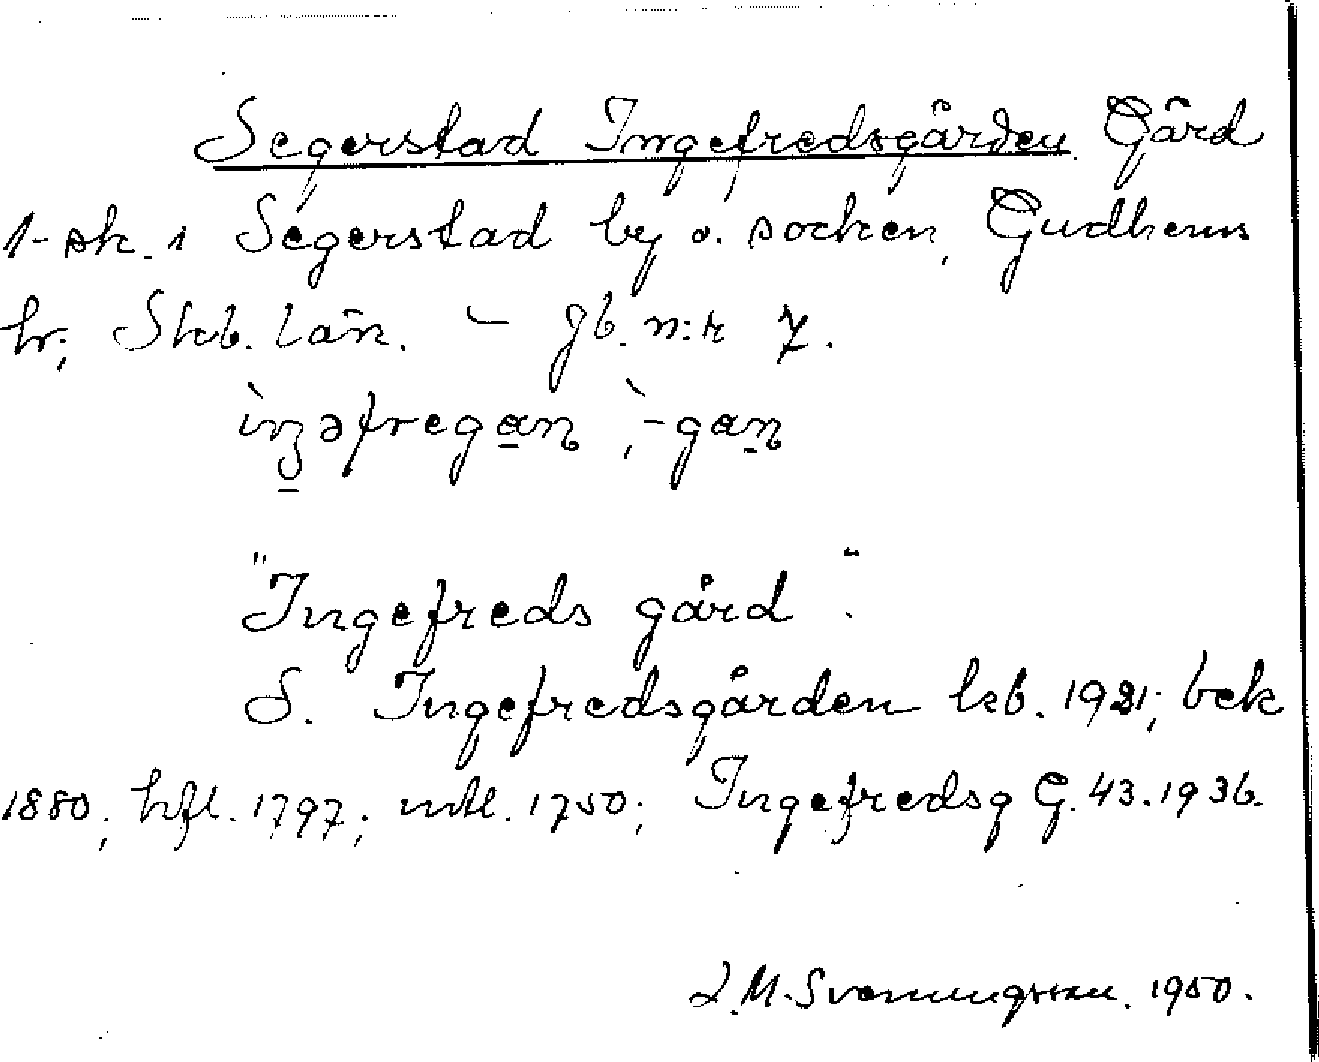 Segerstad Ingefredsgården. Gård
1-sk. i Segerstad by o. socken, Gudhems
hr; Skb. län. – Jb. n:r 7.
ìŋəfregan, ̀-gan
"Ingefreds gård".
S. Ingefredsgården lsb. 1921; bek
1880; hfl. 1797; mtl. 1750; Ingefredsg G. 43. 1936.
Svenungsson. 1950.